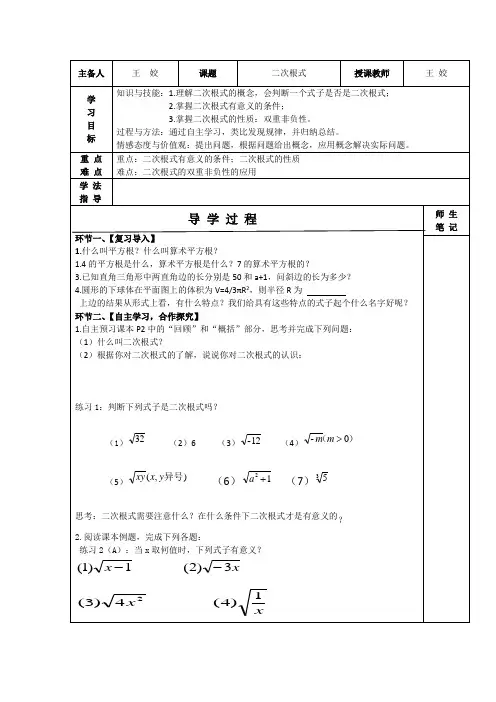 主备人 王 姣 课题 二次根式 授课教师 王 姣
学习目标
知识与技能：1.理解二次根式的概念，会判断一个式子是否是二次根式；
2.掌握二次根式有意义的条件；
3.掌握二次根式的性质：双重非负性。
过程与方法：通过自主学习，类比发现规律，并归纳总结。
情感态度与价值观：提出问题，根据问题给出概念，应用概念解决实际问题。
重 点 重点：二次根式有意义的条件；二次根式的性质
难 点 难点：二次根式的双重非负性的应用
学 法
指 导
导 学 过 程
师 生
笔 记
环节一、【复习导入】
1.什么叫平方根？什么叫算术平方根？
1.4的平方根是什么，算术平方根是什么？7的算术平方根的？
3.已知直角三角形中两直角边的长分别是50和a+1，问斜边的长为多少？
4.圆形的下球体在平面图上的体积为V=4/3πR²，则半径R为
上边的结果从形式上看，有什么特点？我们给具有这些特点的式子起个什么名字好呢？
环节二、【自主学习，合作探究】
1.自主预习课本P2中的“回顾”和“概括”部分，思考并完成下列问题：
（1）什么叫二次根式？
（2）根据你对二次根式的了解，说说你对二次根式的认识：
练习1：判断下列式子是二次根式吗？
（1）√32 （2）6 （3）√-12 （4）√-m（m＞0）
（5）√xy(x, y异号) （6）√a²+1 （7）∛5
思考：二次根式需要注意什么？在什么条件下二次根式才是有意义的？
2.阅读课本例题，完成下列各题：
练习2（A）：当x取何值时，下列式子有意义？
(1)√x−1 (2)√−3x
(3)√4x² (4)√1/x